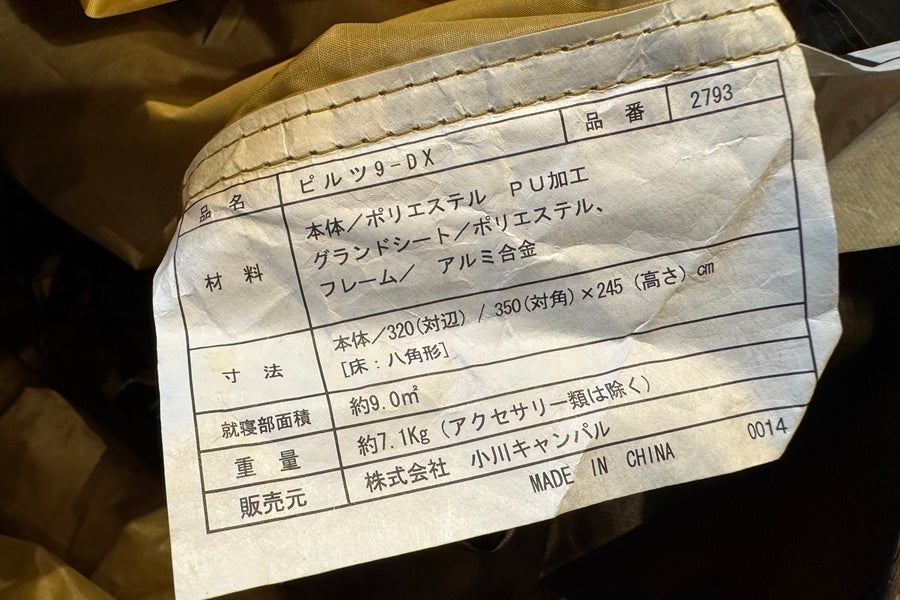 品名 ピルツ9-DX 品番 2793
材料 本体／ポリエステル PU加工
グランドシート／ポリエステル、
フレーム／ アルミ合金
寸法 本体／320(対辺) / 350(対角)×245 (高さ) cm
[床：八角形]
就寝部面積 約9.0㎡
重量 約7.1Kg (アクセサリー類は除く)
販売元 株式会社 小川キャンパル
MADE IN CHINA 0014